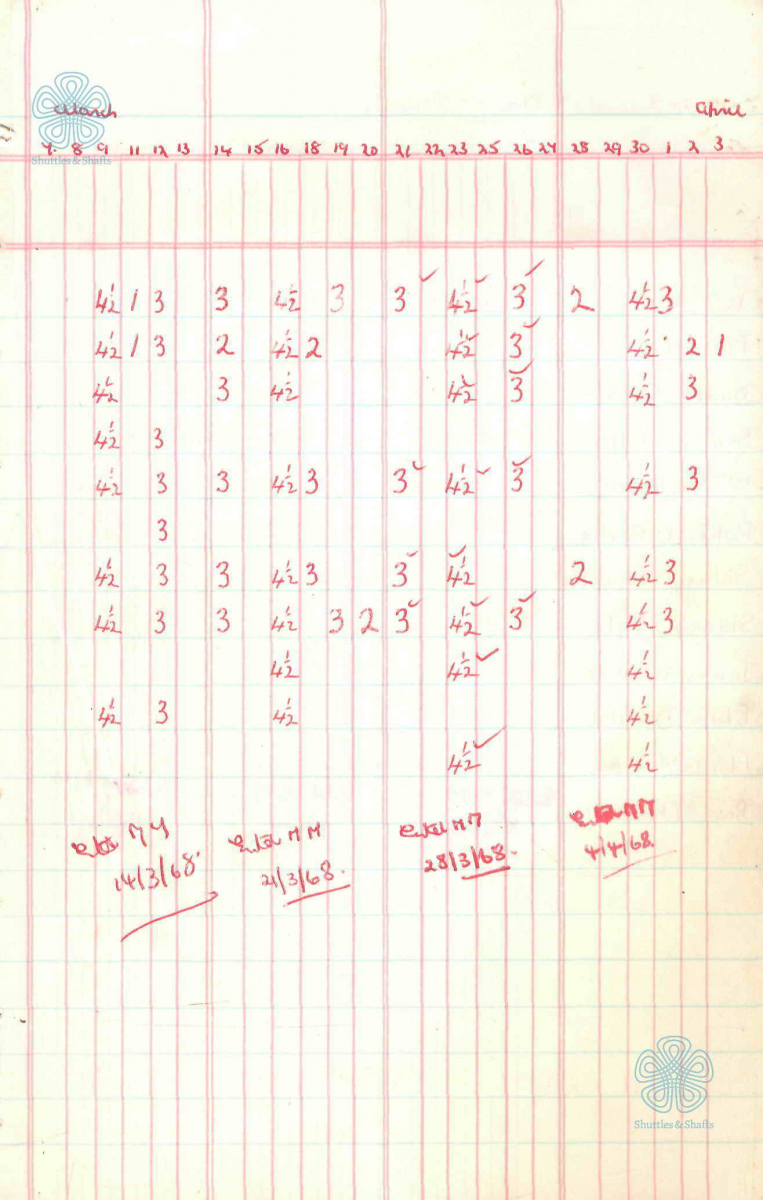 March April
7 8 9 11 12 13 14 15 16 18 19 20 21 22 23 25 26 27 28 29 30 1 2 3
Shuttles & Shafts
4½ 1 3 3 4½ 3 3 ✓ 4½ ✓ 3 ✓ 2 4½ 3
4½ 1 3 2 4½ 2 4½ ✓ 3 ✓ 4½ 2 1
4½ 3 4½ 4½ ✓ 3 ✓ 4½ 3
4½ 3
4½ 3 3 4½ 3 3 ✓ 4½ ✓ 3 ✓ 4½ 3
3
4½ 3 3 4½ 3 3 ✓ 4½ ✓ 2 4½ 3
4½ 3 3 4½ 3 2 3 ✓ 4½ ✓ 3 ✓ 4½ 3
4½ 4½ ✓ 4½
4½ 3 4½ 4½
4½ ✓ 4½
MM MM MM
14/3/68. 21/3/68. 28/3/68. 4/4/68.
Shuttles & Shafts